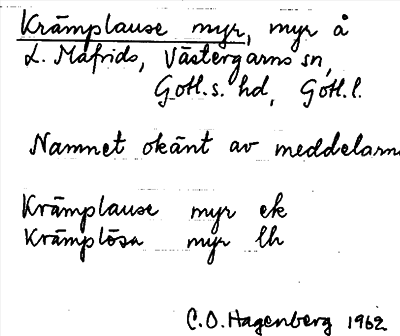 Krämplause myr, myr å
L. Mafrids, Västergarns sn,
Gotl. s. hd, Gotl. l.
Namnet okänt av meddelarna
Krämplause myr ek
Krämplösa myr lh
C.O. Hagenberg 1962